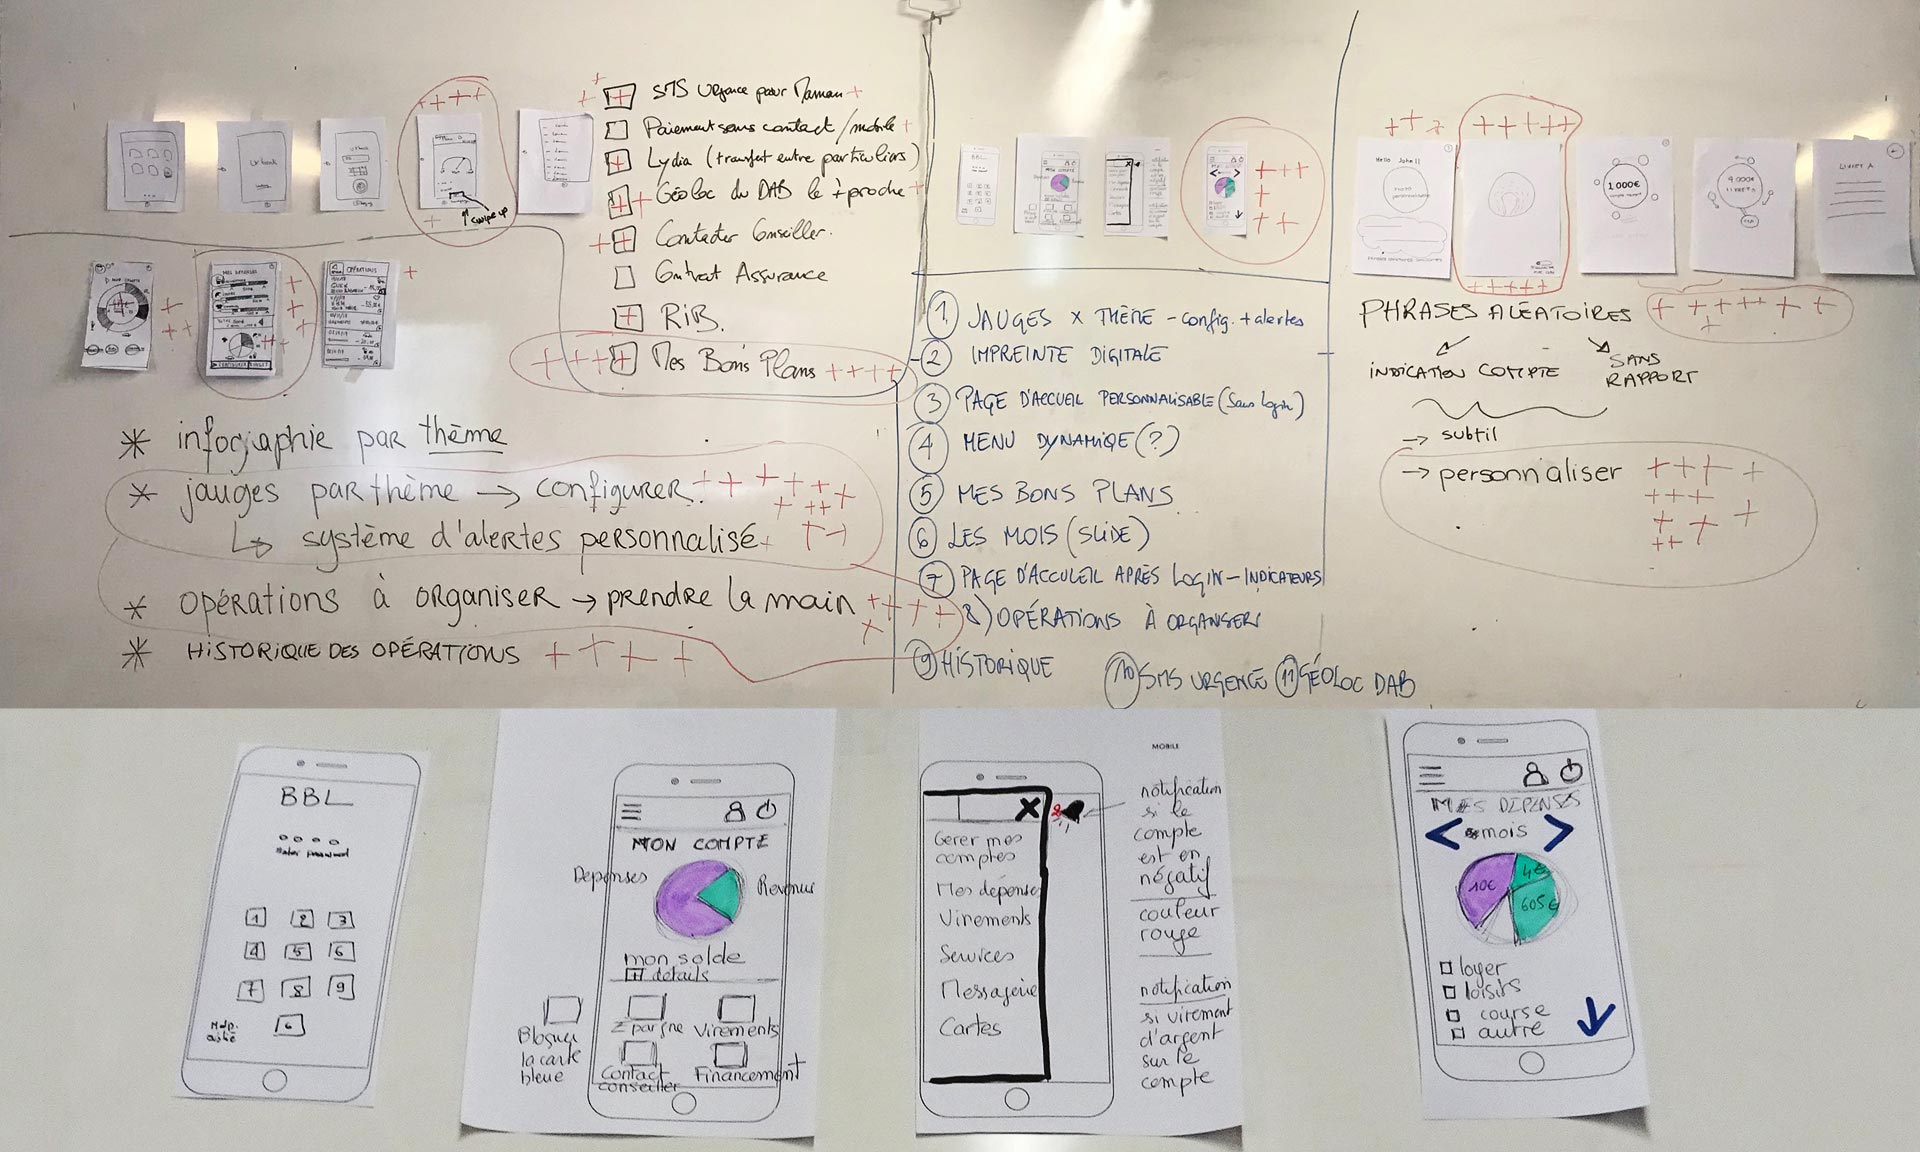 swipe up
SMS Urgence pour Maman
Paiement sans contact/mobile
Lydia (transfert entre particuliers)
Géoloc du DAB le + proche
Contacter Conseiller.
Contrat Assurance
RiB.
Mes Bons Plans
MES DEPENSES
OPÉRATIONS
* infographie par thème
* jauges par thème → configurer
↳ système d'alertes personnalisé
* opérations à organiser → prendre la main
* HISTORIQUE DES OPÉRATIONS
BBL
MON COMPTE
1 JAUGES x THÈME - config. + alertes
2 IMPREINTE DIGITALE
3 PAGE D'ACCUEIL PERSONNALISABLE (Sans login)
4 MENU DYNAMIQE (?)
5 MES BONS PLANS
6 LES MOIS (SLIDE)
7 PAGE D'ACCUEIL APRÈS LOGIN - INDICATEURS
8) OPÉRATIONS À ORGANISER
9 HISTORIQUE
10 SMS URGENCE
11 GÉOLOC DAB
Hello John !!
1 000€
9 000€
LIVRET A
PHRASES ALÉATOIRES
INDICATION COMPTE
SANS
RAPPORT
→ subtil
→ personnaliser
BBL
1 2 3
4 5 6
7 8 9
MON COMPTE
Depenses
Revenus
mon solde
+ détails
Epargne
Virements
Bloquer
la carte
bleue
Contact
conseiller
Financement
MOBILE
2
Gerer mes
comptes
Mes dépenses
Virements
Services
Messagerie
Cartes
notification
si le
compte
est en
négatif
couleur
rouge
notification
si virement
d'argent
sur le
compte
MES DEPENSES
< mois >
10€
4€
605€
loyer
loisirs
course
autre